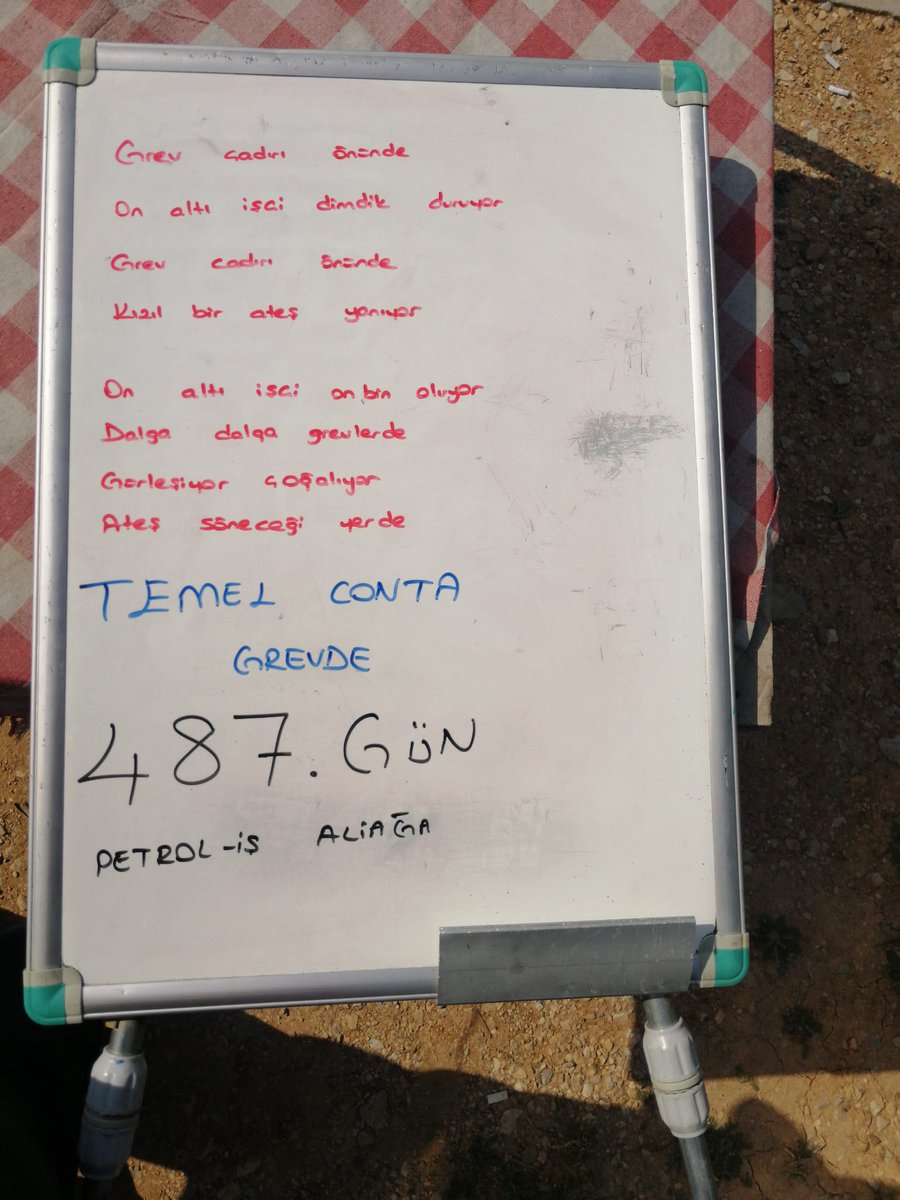 Grev çadırı önünde
On altı işçi dimdik duruyor
Grev çadırı önünde
Kızıl bir ateş yanıyor
On altı işçi on bin oluyor
Dalga dalga grevlerde
Gürleşiyor çoğalıyor
Ateş söneceği yerde
TEMEL CONTA
GREVDE
487. GÜN
PETROL-İŞ ALİAĞA